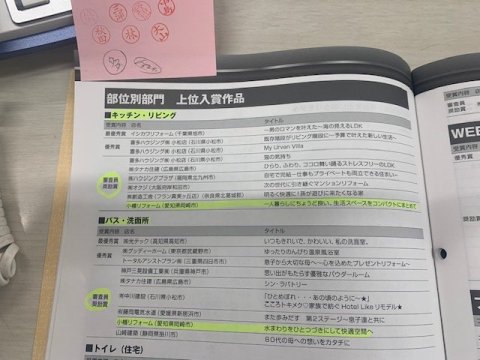 部位別部門 上位入賞作品
■キッチン・リビング
受賞内容 店名 タイトル
最優秀賞 イシカワリフォーム(千葉県旭市) ～男のロマンを叶えた～海の見えるLDK
優秀賞 喜多ハウジング㈱ 小松店(石川県小松市) 既存階段がリビング階段に～予算で叶えた新しい生活～
喜多ハウジング㈱ 小松店(石川県小松市) My Urvan Villa
喜多ハウジング㈱ 小松店(石川県小松市) 窓の気持ち
㈱タナカ住建(広島県広島市) ひらり、ふわり、ココロ舞い踊るストレスフリーのLDK
審査員奨励賞
㈱ハウジングプラザ(福岡県北九州市) 自宅で完結―仕事もプライベートも両立できる住まい―
㈱オクジ(大阪府岸和田市) 次の世代に引き継ぐマンションリフォーム
明るく快適に!孫が遊びに来たくなる家
小幡リフォーム(愛知県岡崎市) 一人暮らしにちょうど良い。生活スペースをコンパクトにまとめて
■バス・洗面所
受賞内容 店名 タイトル
最優秀賞 ㈱光テック(高知県高知市) いつもきれいで、かわいい、私の洗面室。
優秀賞 ㈱グッディーホーム(東京都武蔵野市) ゆったりのんびり温泉風呂室
トータルアシストプラン㈱(三重県四日市市) 息子から大切な母へ～心を込めたプレゼントリフォーム～
神戸三晃設備工業㈱(兵庫県神戸市) 思い出がもたらす優雅なパウダールーム
㈱タナカ住建(広島県広島市) シン・ラバトリー
審査員奨励賞
㈲中川建設(石川県小松市) 「ひとめぼれ・・・あの頃のように～★」
こころトキメク♡家族で紡ぐ Hotel Like リモデル★
㈲藤岡電気水道(愛媛県新居浜市) また歩みだす 第2ステージ～息子達と共に
小幡リフォーム(愛知県岡崎市) 水まわりをひとつづきにして快適空間へ
山崎建築(静岡県掛川市) 80代の母への想いをカタチに
■トイレ(住宅)
受賞
審査員
奨励賞
WEB
受賞内容